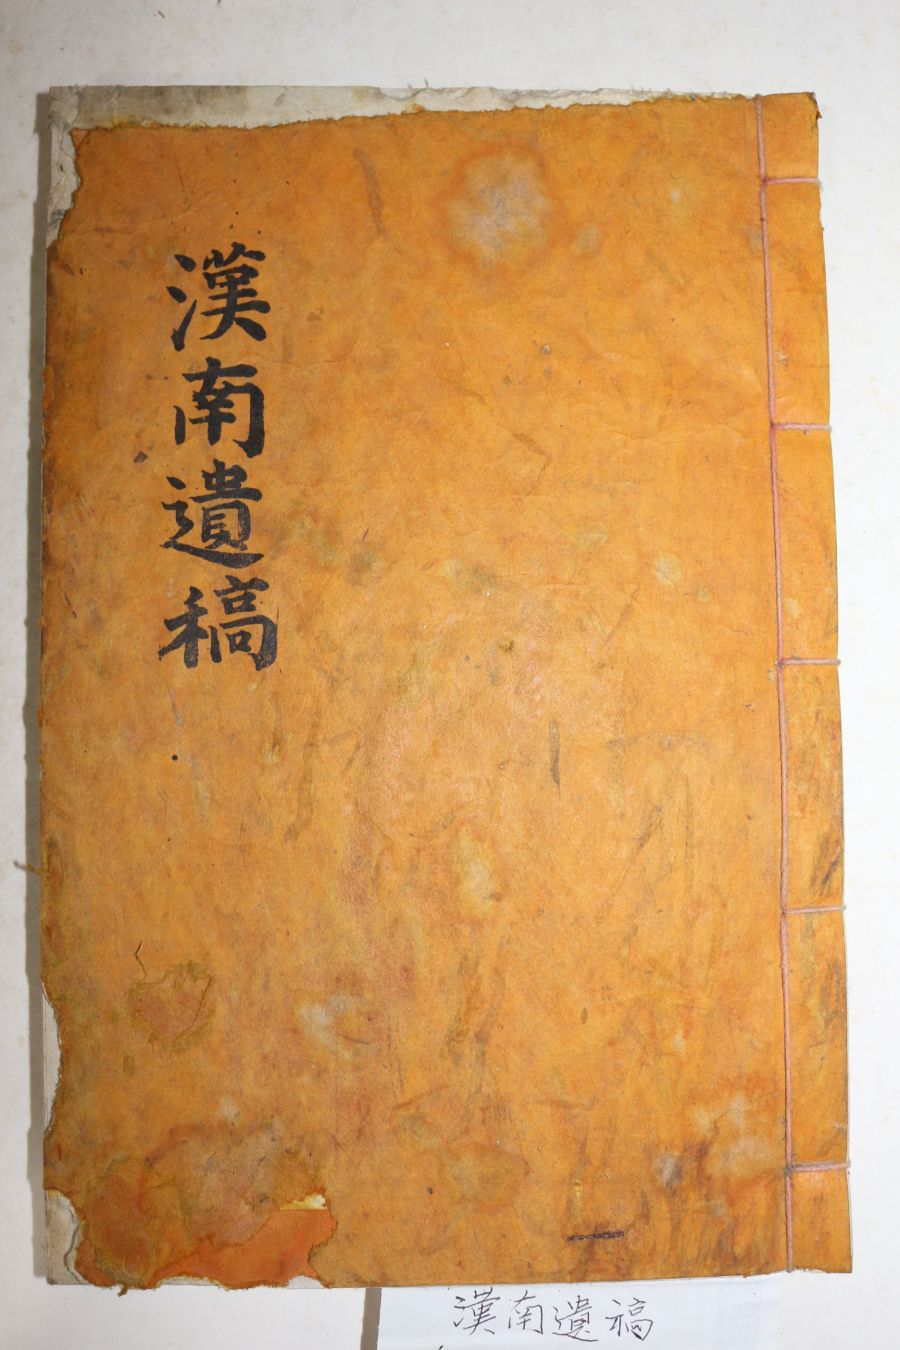 漢南遺稿
一
漢南遺稿